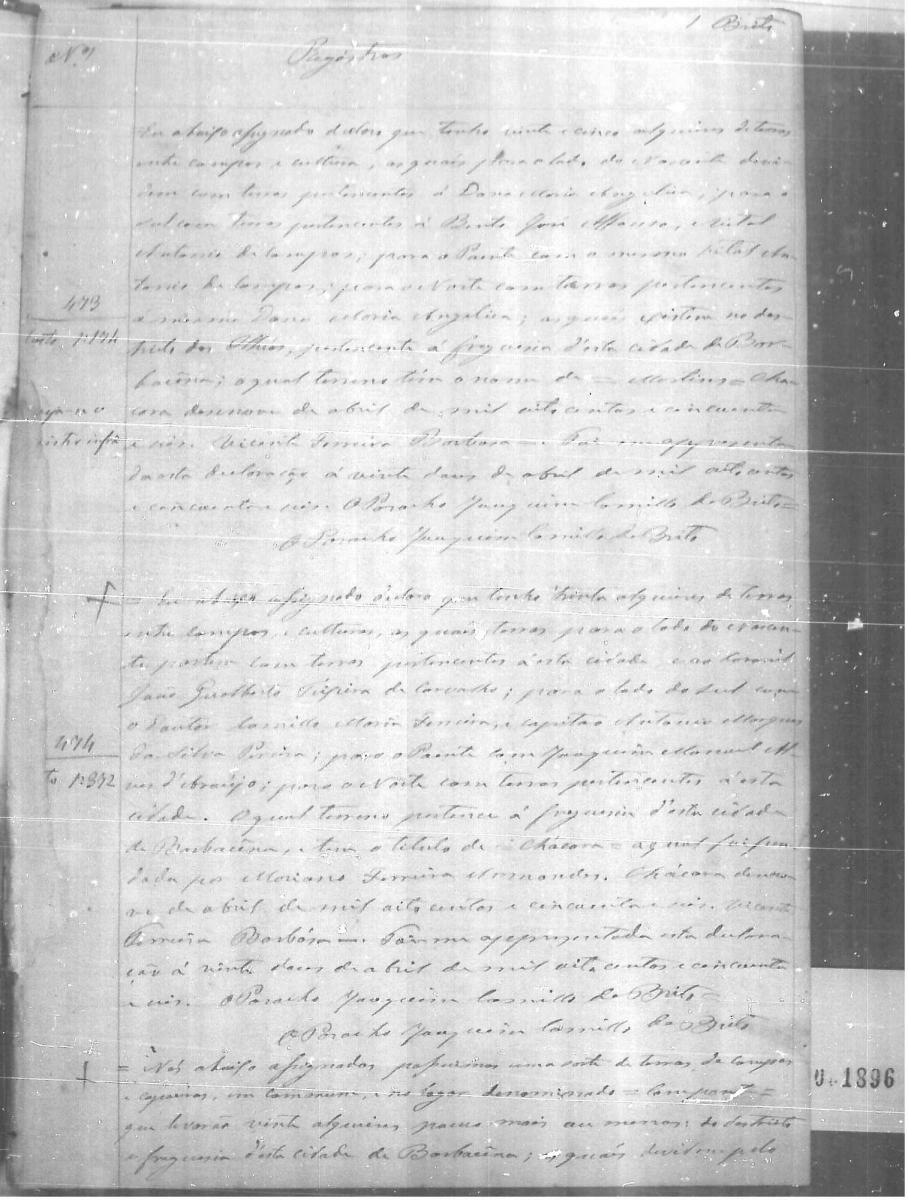 1 Brito
Nº 1
Registros
Eu abaixo assignado declaro que tenho vinte e cinco alqueires de terras
entre campos e cultura, as quais para o lado do Nascente devi-
dem com terras pertencentes á Dona Maria Angelica; para o
sul com terras pertencentes á Bento José Affonso, e Vital
Antonio de Campos; para o Poente com o mesmo Vital An-
tonio de Campos; para o Norte com terras pertencentes
473
a mesma Dona Maria Angelica; as quais existem no des-
1:194
tricto dos Ilhéos, pertencente á freguesia d'esta cidade de Bar-
bacena; o qual terreno tem o nome de = Martins = Cha-
cara desenove de abril de mil oito centos e cincoenta
infra
e seis. Vicente Ferreira Barbosa = Foi me appresenta-
da esta declaração á vinte dous de abril de mil oito centos
e cincoenta e seis. O Parocho Joaquim Camillo de Brito =
O Parocho Joaquim Camillo de Brito
= Eu abaixo assignado declaro que tenho trinta alqueires de terras
entre campos, e culturas, as quais terras para o lado do Nascen-
te partem com terras pertencentes á esta cidade e ao Coronel
João Gualberto Teixeira de Carvalho; para o lado do sul com
o Doutor Camillo Maria Ferreira, e capitão Antonio Marques
474
da Silva Pereira; para o Poente com Joaquim Manoel Al-
1:392
ves d'Araujo; para o Norte com terras pertencentes á esta
cidade. O qual terreno pertence á freguesia d'esta cidade
de Barbacena, e tem o titulo de = Chácara = a qual foi fun-
dada por Mariano Ferreira Armondes. Chácara desno-
ve de abril de mil oito centos e cincoenta e seis. Vicente
Ferreira Barbosa = Foi me appresentada esta declara-
ção á vinte dous de abril de mil oito centos e cincoenta
e seis. O Parocho Joaquim Camillo de Brito =
O Parocho Joaquim Camillo de Brito
= Nós abaixo assignados possuimos uma sorte de terras, de campos
e capoeiras, em commum, e no lugar denominado =
que levarão vinte alqueires pouco mais ou menos; do destricto
e freguesia d'esta cidade de Barbacena; as quáis devidem pelo
1896